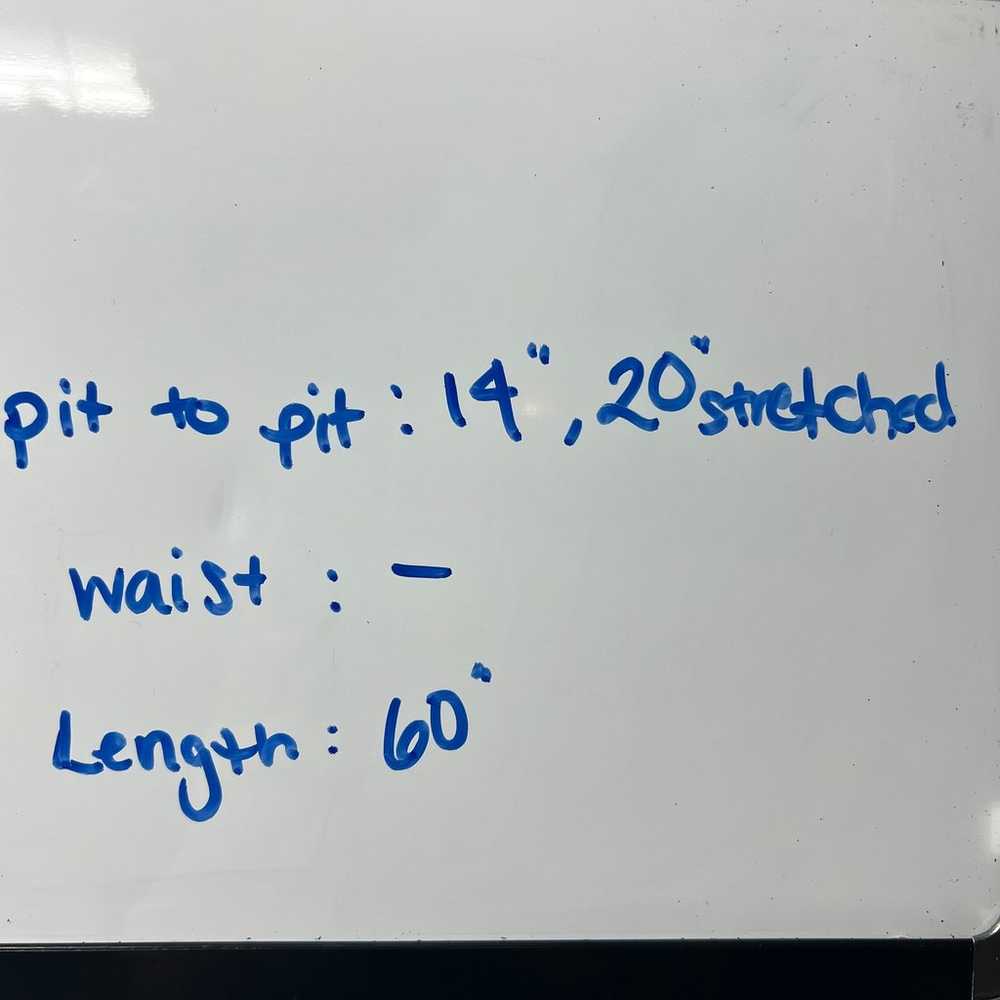 pit to pit : 14", 20" stretched
waist : -
Length : 60"